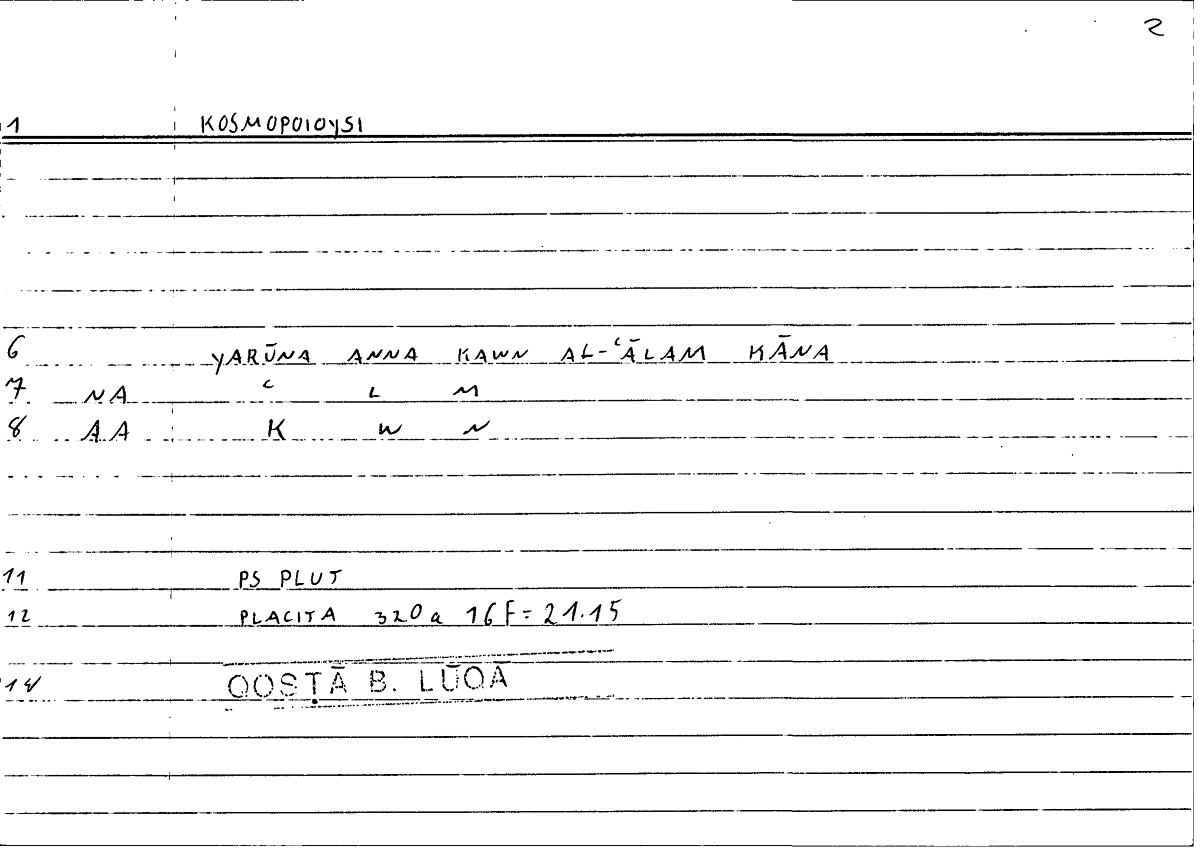 2
1 KOSMOPOIOYSI
6 YARŪNA ANNA KAWN AL-ʿĀLAM KĀNA
7 NA ʿ L M
8 AA K W N
11 PS PLUT
12 PLACITA 320a 16F=21.15
14 QOSṬĀ B. LŪQĀ